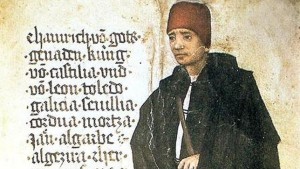 ehainrich võ gots
genaden kũng
võ castilia vnd
võ leon toledo
galicia seuillia
cordua
Jan algarbe
algezira